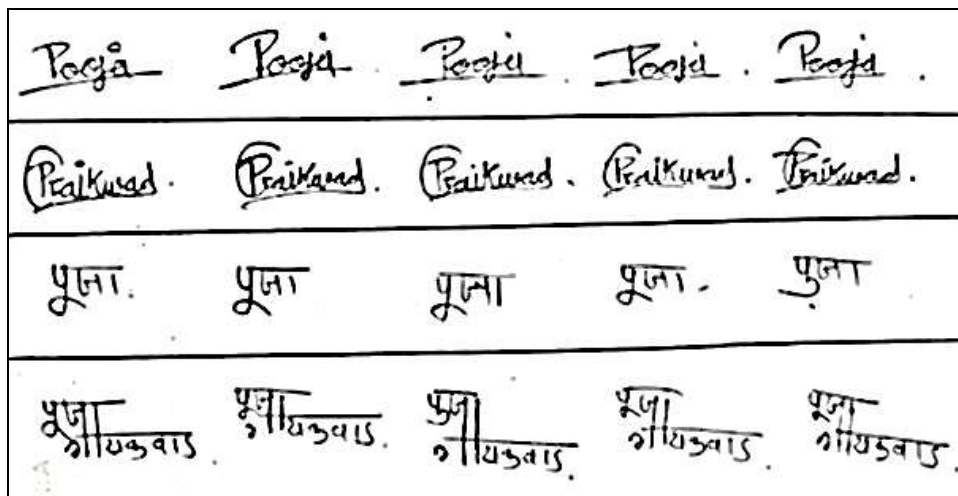 Pooja Pooja. Pooja. Pooja. Pooja.
Praikwad. Praikwad. Praikwad. Praikwad. Praikwad.
पूजा. पूजा पूजा पूजा. पूजा
पूजा पूजा पूजा पूजा पूजा
गायकवाड. गायकवाड. गायकवाड. गायकवाड. गायकवाड.